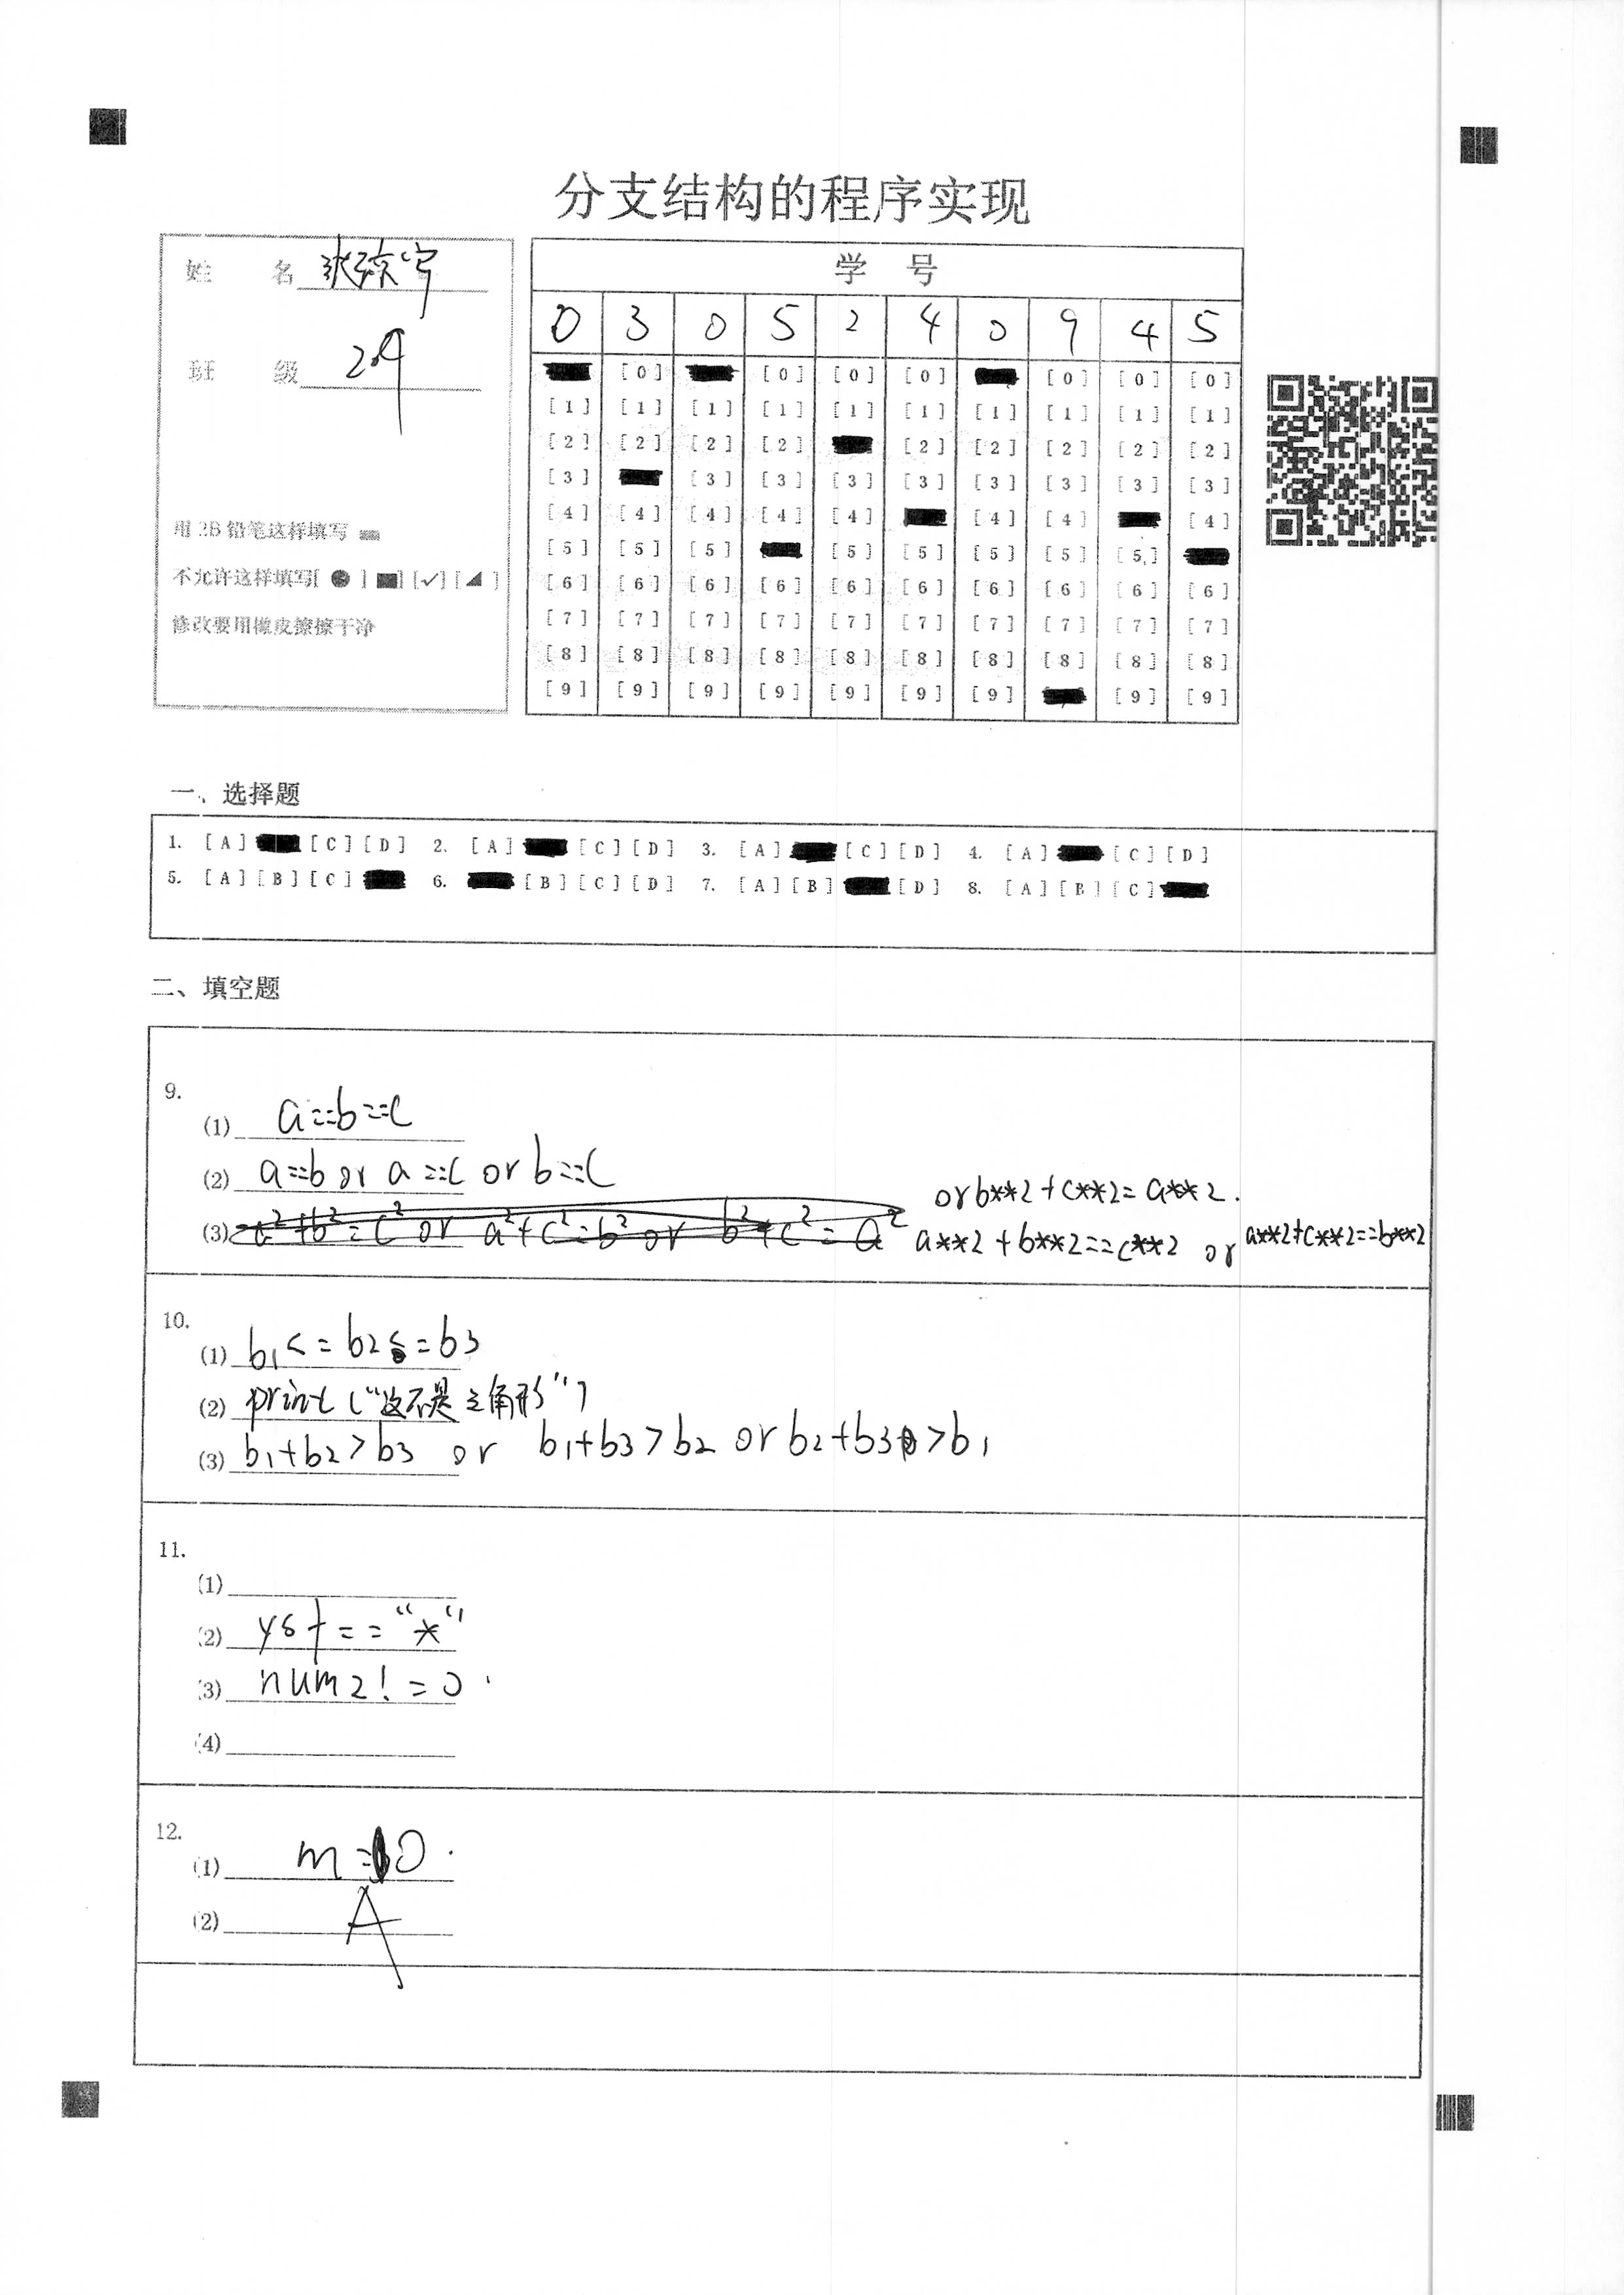 分支结构的程序实现
姓 名
班 级 24
用 2B 铅笔这样填写
不允许这样填写[ ● ] [■] [✓] [◢ ]
修改要用橡皮擦擦干净
学 号
0 3 0 5 2 4 0 9 4 5
[0] [0] [0] [0] [0] [0] [0]
[1] [1] [1] [1] [1] [1] [1] [1] [1] [1]
[2] [2] [2] [2] [2] [2] [2] [2] [2]
[3] [3] [3] [3] [3] [3] [3] [3] [3]
[4] [4] [4] [4] [4] [4] [4] [4]
[5] [5] [5] [5] [5] [5] [5] [5]
[6] [6] [6] [6] [6] [6] [6] [6] [6] [6]
[7] [7] [7] [7] [7] [7] [7] [7] [7] [7]
[8] [8] [8] [8] [8] [8] [8] [8] [8] [8]
[9] [9] [9] [9] [9] [9] [9] [9] [9]
一、选择题
1. [A] [C] [D] 2. [A] [C] [D] 3. [A] [C] [D] 4. [A] [C] [D]
5. [A] [B] [C] 6. [B] [C] [D] 7. [A] [B] [D] 8. [A] [B] [C]
二、填空题
9.
(1) a==b==c
(2) a==b or a==c or b==c
or b**2+c**2=a**2.
(3) a²+b²=c² or a²+c²=b² or b²+c²=a² a**2+b**2==c**2 or a**2+c**2==b**2
10.
(1) b1<=b2<=b3
(2) print("这不是三角形")
(3) b1+b2>b3 or b1+b3>b2 or b2+b3>b1
11.
(1)
(2) ysf=="*"
(3) num2!=0
(4)
12.
(1) m=0
(2) A